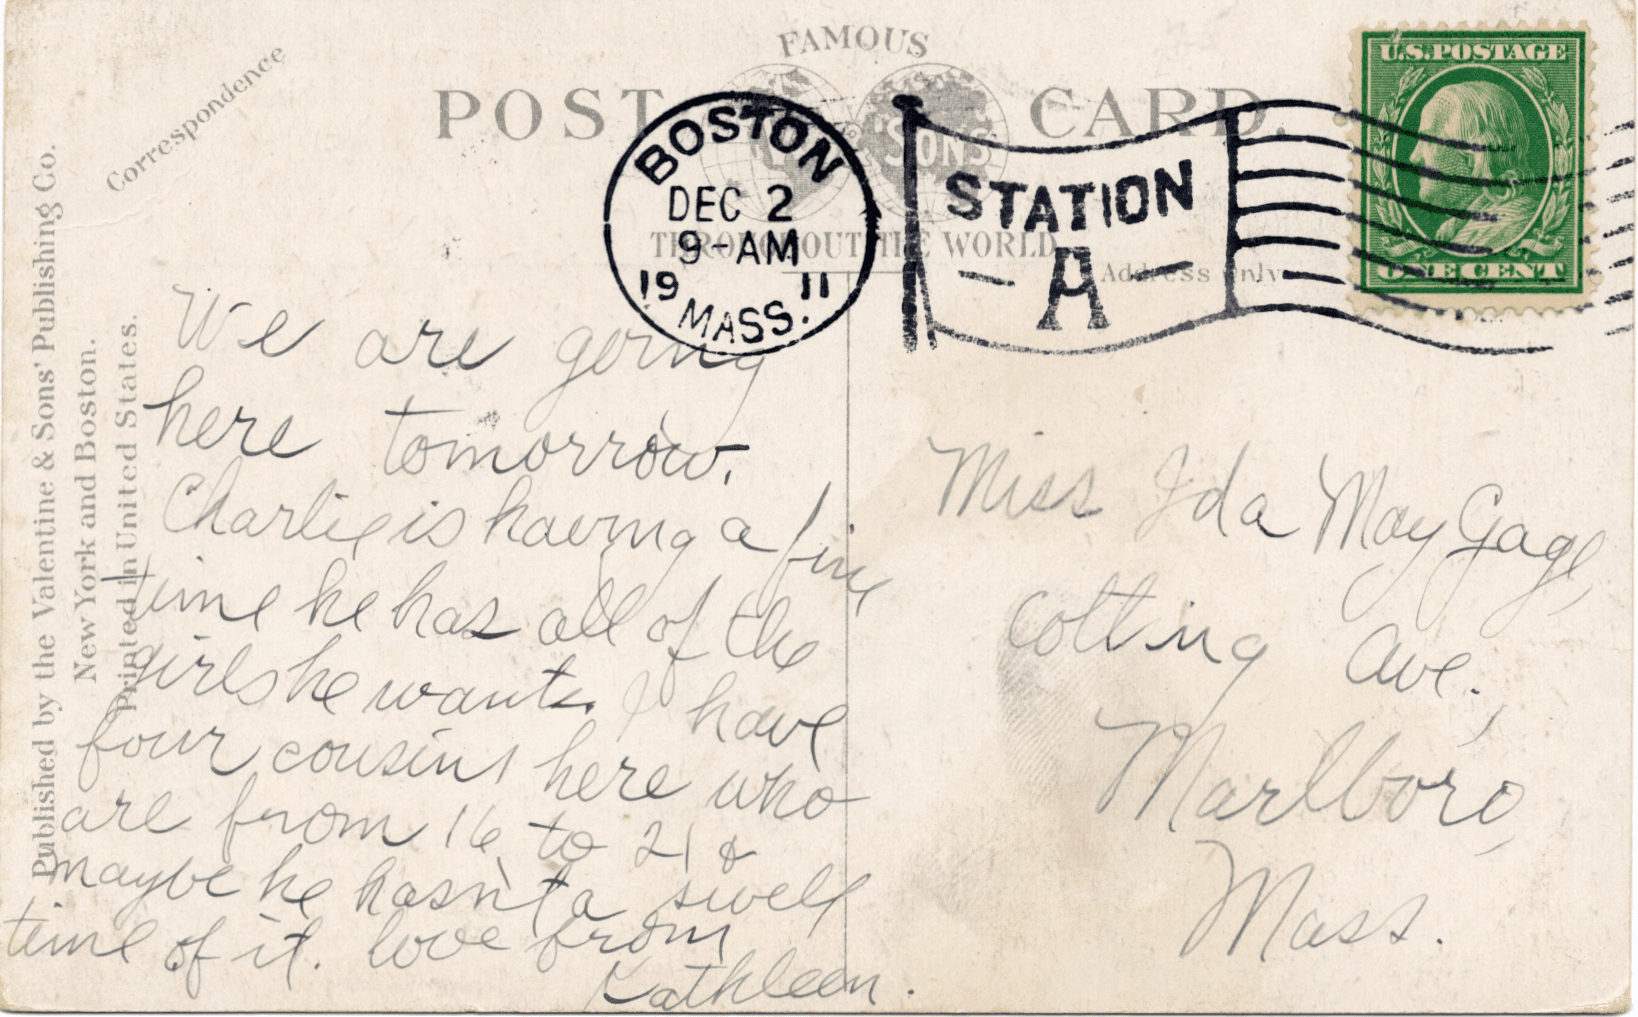 Correspondence
FAMOUS
POST CARD.
SONS
THROUGHOUT THE WORLD
Address Only
BOSTON
DEC 2
9-AM
19 11
MASS.
STATION
- A -
U.S. POSTAGE
ONE CENT
Published by the Valentine & Sons' Publishing Co.
New York and Boston.
Printed in United States.
We are going
here tomorrow.
Charlie is having a fine
time he has all of the
girls he wants. I have
four cousins here who
are from 16 to 21 &
maybe he hasn't a swell
time of it. love from
Kathleen.
Miss Ida May Gage,
Cotting Ave.,
Marlboro,
Mass.